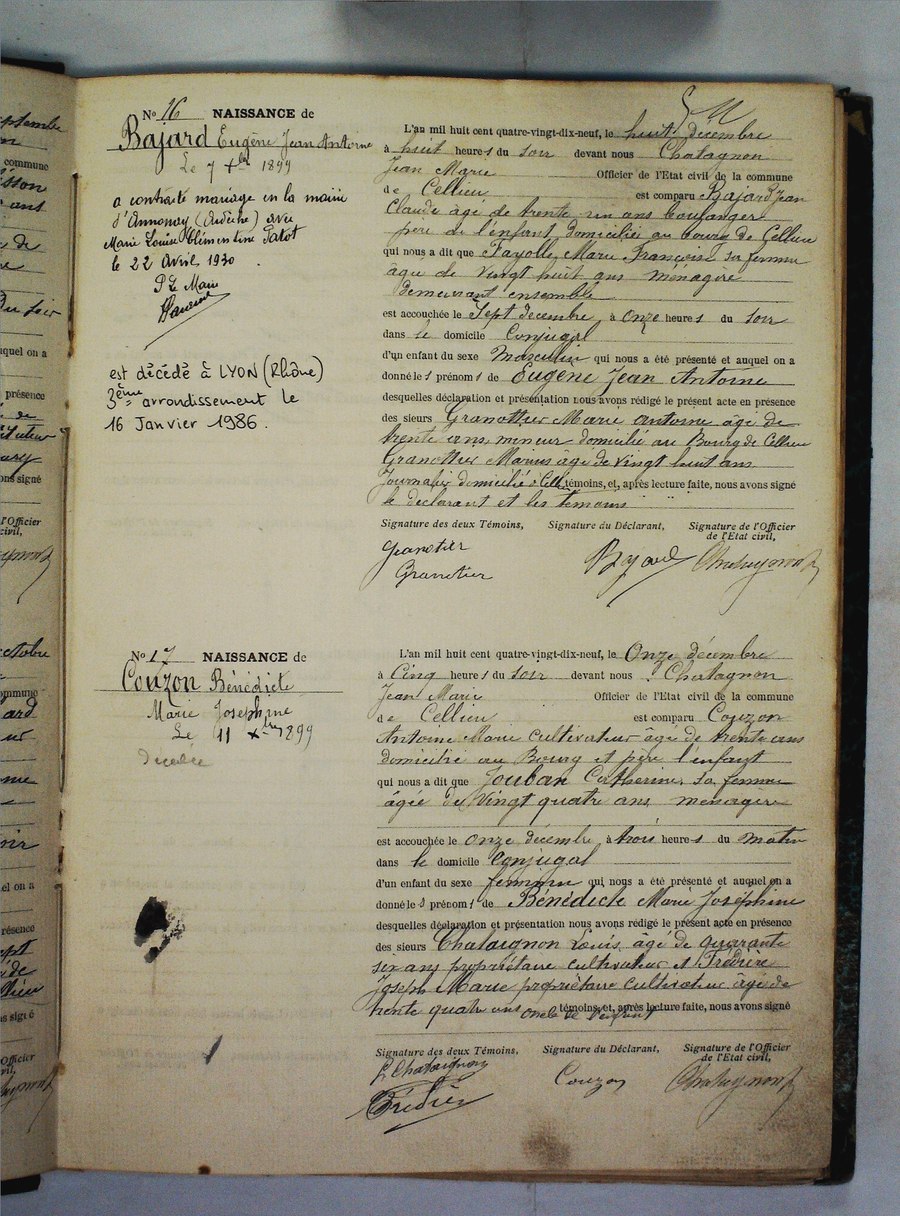 No 16 NAISSANCE de
Bajard Eugène Jean Antoine
Le 7 Xbre 1899
a contracté mariage en la mairie
d'Annonay (Ardèche) avec
Marie Louise Clémentine Patot
le 22 Avril 1930
Pr le Maire
est décédé à LYON (Rhône)
3ème arrondissement le
16 Janvier 1986.
L'an mil huit cent quatre-vingt-dix-neuf, le huit décembre
à huit heures du soir devant nous Chatagnon
Jean Marie Officier de l'Etat civil de la commune
de Cellieu est comparu Bajard Jean
Claude âgé de trente un ans boulanger
père de l'enfant domicilié au bourg de Cellieu
qui nous a dit que Fayolle Marie Françoise sa femme
âgée de vingt huit ans ménagère
demeurant ensemble
est accouchée le Sept decembre, à onze heures du soir
dans le domicile Conjugal
d'un enfant du sexe Masculin qui nous a été présenté et auquel on a
donné les prénoms de Eugène Jean Antoine
desquelles déclaration et présentation nous avons rédigé le présent acte en présence
des sieurs Granottier Marie antoine âgé de
trente ans mineur domicilié au Bourg de Cellieu
Granottier Marius âgé de vingt huit ans
Journalier domicilié à Cell. témoins, et, après lecture faite, nous avons signé
le déclarant et les témoins
Signature des deux Témoins, Signature du Déclarant, Signature de l'Officier
de l'Etat civil,
Granotier
Granotier Bajard Chatagnon
No 17 NAISSANCE de
Couzon Bénédicte
Marie Joséphine
Le 11 Xbre 1899
Décédée
L'an mil huit cent quatre-vingt-dix-neuf, le Onze décembre
à Cinq heures du soir devant nous Chatagnon
Jean Marie Officier de l'Etat civil de la commune
de Cellieu est comparu Couzon
Antoine Marie cultivateur âgé de trente ans
domicilié au Bourg et père l'enfant
qui nous a dit que Jouban Catherine sa femme
âgée de vingt quatre ans ménagère
est accouchée le onze décembre à trois heures du matin
dans le domicile Conjugal
d'un enfant du sexe féminin qui nous a été présenté et auquel on a
donné les prénoms de Bénédicte Marie Joséphine
desquelles déclaration et présentation nous avons rédigé le présent acte en présence
des sieurs Chataignon Louis, âgé de quarante
six ans propriétaire cultivateur et Fredière
Joseph Marie propriétaire cultivateur âgé de
trente quatre ans oncle de l'enfant témoins, et, après lecture faite, nous avons signé
Signature des deux Témoins, Signature du Déclarant, Signature de l'Officier
de l'Etat civil,
L. Chataignon Couzon Chatagnon
Fredière